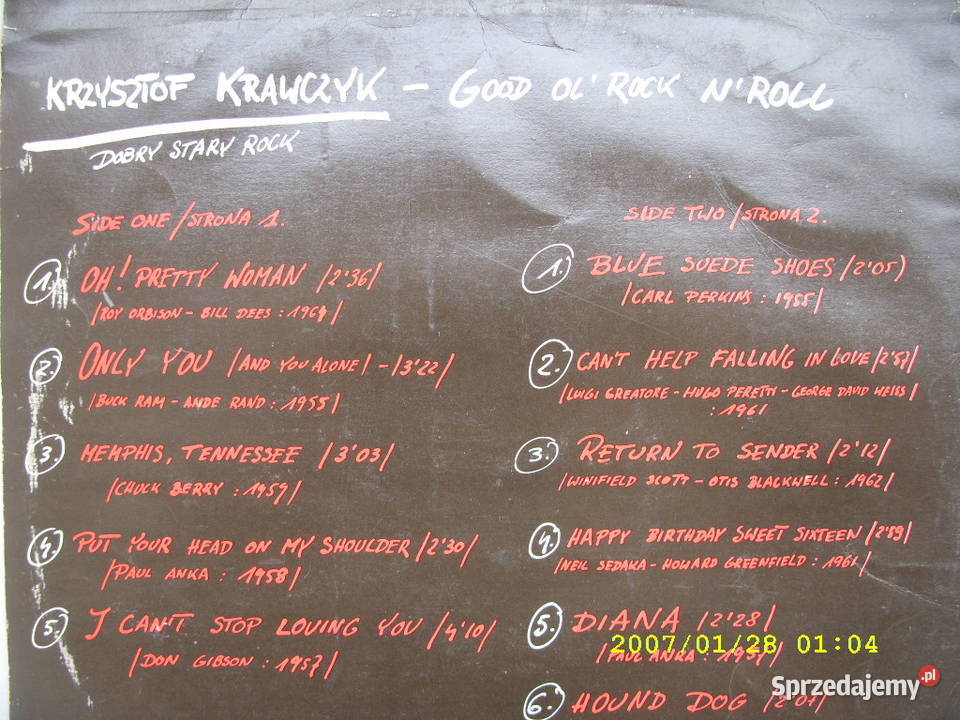 KRZYSZTOF KRAWCZYK – GOOD OL' ROCK N' ROLL
DOBRY STARY ROCK
SIDE ONE /STRONA 1.
1. OH! PRETTY WOMAN /2'36/
/ROY ORBISON – BILL DEES : 1964/
2. ONLY YOU /AND YOU ALONE/ – /3'22/
/BUCK RAM – ANDE RAND : 1955/
3. MEMPHIS, TENNESSEE /3'03/
/CHUCK BERRY : 1959/
4. PUT YOUR HEAD ON MY SHOULDER /2'30/
/PAUL ANKA : 1958/
5. I CAN'T STOP LOVING YOU /4'10/
/DON GIBSON : 1957/
SIDE TWO /STRONA 2.
1. BLUE SUEDE SHOES /2'05)
/CARL PERKINS : 1955/
2. CAN'T HELP FALLING IN LOVE /2'57/
/LUIGI CREATORE – HUGO PERETTI – GEORGE DAVID WEISS/
: 1961
3. RETURN TO SENDER /2'12/
/WINIFIELD SCOTT – OTIS BLACKWELL : 1962/
4. HAPPY BIRTHDAY SWEET SIXTEEN /2'59/
/NEIL SEDAKA – HOWARD GREENFIELD : 1961/
5. DIANA /2'28/
/PAUL ANKA : 1957/
6. HOUND DOG /2'07/
2007/01/28 01:04
Sprzedajemy.pl